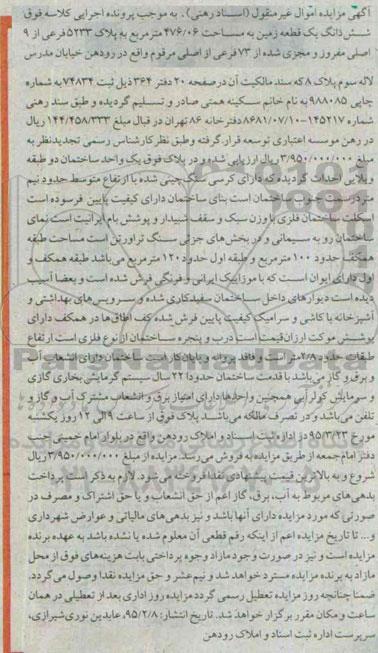 آگهی مزایده اموال غیرمنقول (اسناد رهنی). به موجب پرونده اجرایی کلاسه فوق
شش دانگ یک قطعه زمین به مساحت ۴۷۶/۰۶ مترمربع به پلاک ۵۲۳۳ فرعی از ۹
اصلی مفروز و مجزی شده از ۷۳ فرعی از اصلی مرقوم واقع در رودهن خیابان مدرس
لاله سوم پلاک ۸ که سند مالکیت آن در صفحه ۲۰ دفتر ۳۶۴ ذیل ثبت ۷۴۸۳۴ به شماره
چاپی ۹۸۸۰۸۵ به نام خانم سکینه همتی صادر و تسلیم گردیده و طبق سند رهنی
شماره ۱۴۵۲۱۷-۸۶۸۱/۰۷/۱۰ دفترخانه ۸۶ تهران در قبال مبلغ ۱۴۴/۴۵۸/۳۳۳ ریال
در رهن موسسه اعتباری توسعه قرار گرفته و طبق نظر کارشناس رسمی تجدیدنظر به
مبلغ ۳/۹۵۰/۰۰۰/۰۰۰ ریال ارزیابی شده و در پلاک فوق یک واحد ساختمان دو طبقه
ویلایی احداث گردیده که دارای کرسی سنگ چینی شده با ارتفاع متوسط حدود نیم
متر در سمت جنوب ساختمان است بنای ساختمان دارای کیفیت پایین فرسوده است
اسکلت ساختمان فلزی با وزن سبک و سقف شیبدار و پوشش بام ایرانیت است نمای
ساختمان رو به سیمانی و در بخش های جزئی سنگ تراورتن است مساحت طبقه
همکف حدود ۱۰۰ مترمربع و طبقه اول حدود ۱۲۰ مترمربع می باشد طبقه همکف و
اول دارای ایوان است که با موزاییک ایرانی و فرنگی فرش شده است و بعضا آسیب
دیده است دیوارهای داخل ساختمان سفیدکاری شده و سرویس های بهداشتی و
آشپزخانه با کاشی و سرامیک کیفیت پایین فرش شده کف اطاق ها در همکف دارای
پوشش موکت ارزان قیمت است درب و پنجره ساختمان از نوع فلزی است ارتفاع
طبقات حدود ۲/۸ متر است و فاقد پروانه و پایان کار است ساختمان دارای انشعاب آب
و برق و گاز می باشد با قدمت ساختمان حدودا ۲۲ سال سیستم گرمایشی بخاری گازی
و سرمایش کولر آبی همچنین واحدها دارای امتیاز برق و انشعاب مشترک آب و گاز و
تلفن می باشد و در تصرف مالکه می باشد. پلاک فوق از ساعت ۹ الی ۱۲ روز یکشنبه
مورخ ۹۵/۳/۲۳ در اداره ثبت اسناد و املاک رودهن واقع در بلوار امام خمینی جنب
دفتر امام جمعه از طریق مزایده به فروش می رسد. مزایده از مبلغ ۳/۹۵۰/۰۰۰/۰۰۰ ریال
شروع و به بالاترین قیمت پیشنهادی نقدا فروخته می شود. لازم به ذکر است پرداخت
بدهی های مربوط به آب، برق، گاز اعم از حق انشعاب و یا حق اشتراک و مصرف در
صورتی که مورد مزایده دارای آنها باشد و نیز بدهی های مالیاتی و عوارض شهرداری
و... تا تاریخ مزایده اعم از اینکه رقم قطعی آن معلوم شده یا نشده باشد به عهده برنده
مزایده است و نیز در صورت وجود مازاد وجوه پرداختی بابت هزینه های فوق از محل
مازاد به برنده مزایده مسترد خواهد شد و نیم عشر و حق مزایده نقدا وصول می گردد.
ضمنا چنانچه روز مزایده تعطیل رسمی گردد مزایده روز اداری بعد از تعطیلی در همان
ساعت و مکان مقرر برگزار خواهد شد. تاریخ انتشار: ۹۵/۲/۸، عابدین نوری شیرازی،
سرپرست اداره ثبت اسناد و املاک رودهن